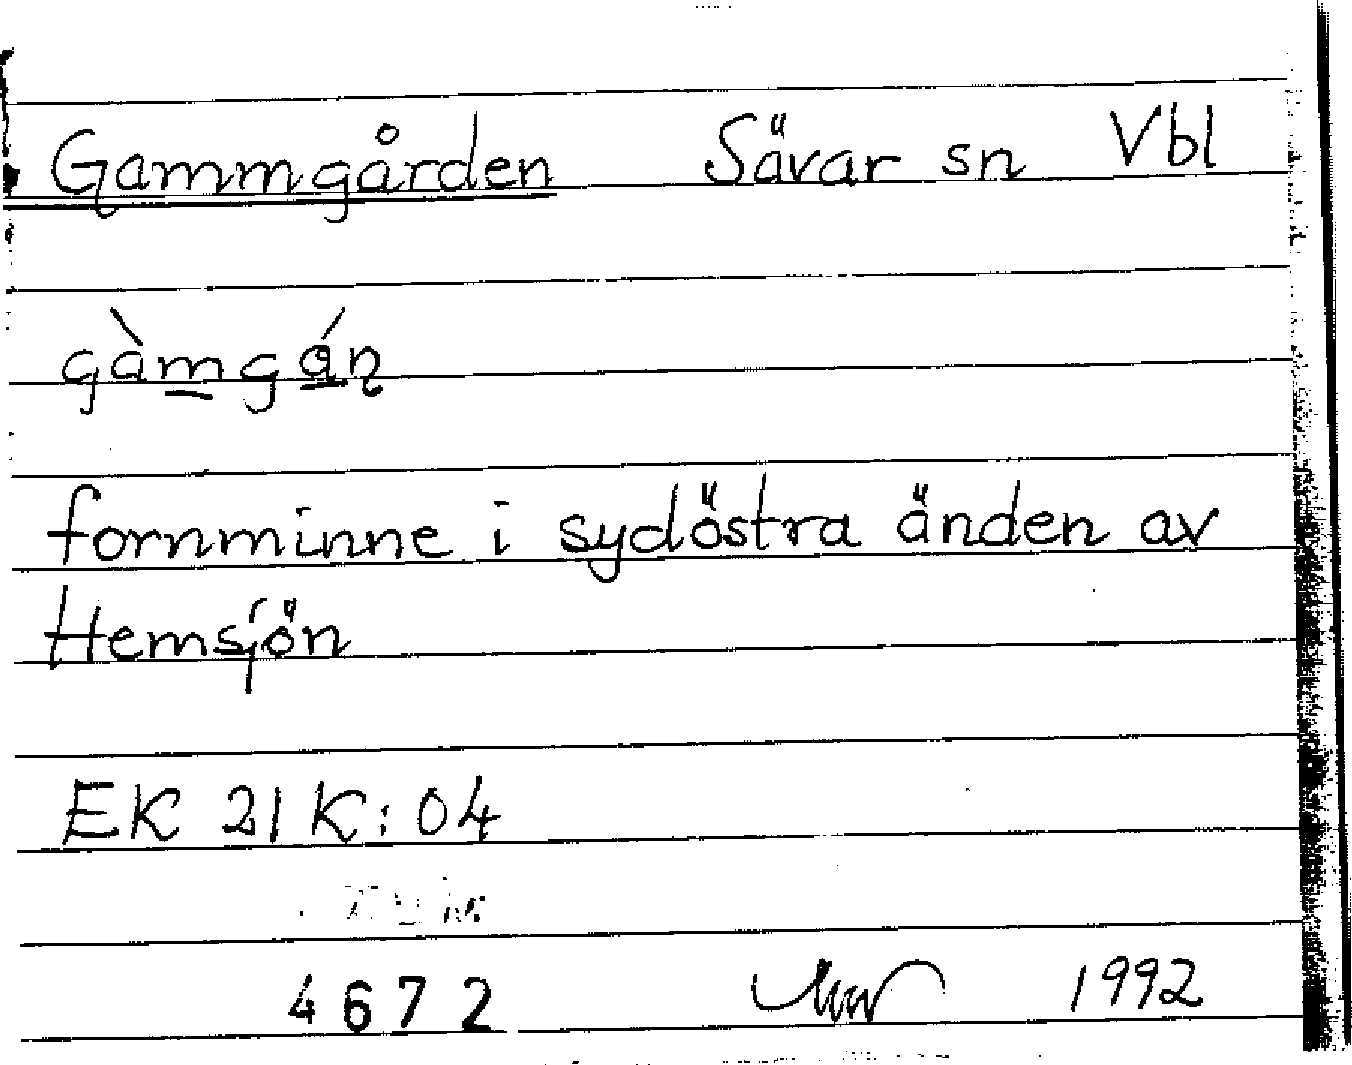 Gammgården Sävar sn Vbl
gàmgá̊ṇ
fornminne i sydöstra änden av
Hemsjön
EK 21 K:04
4672 1992